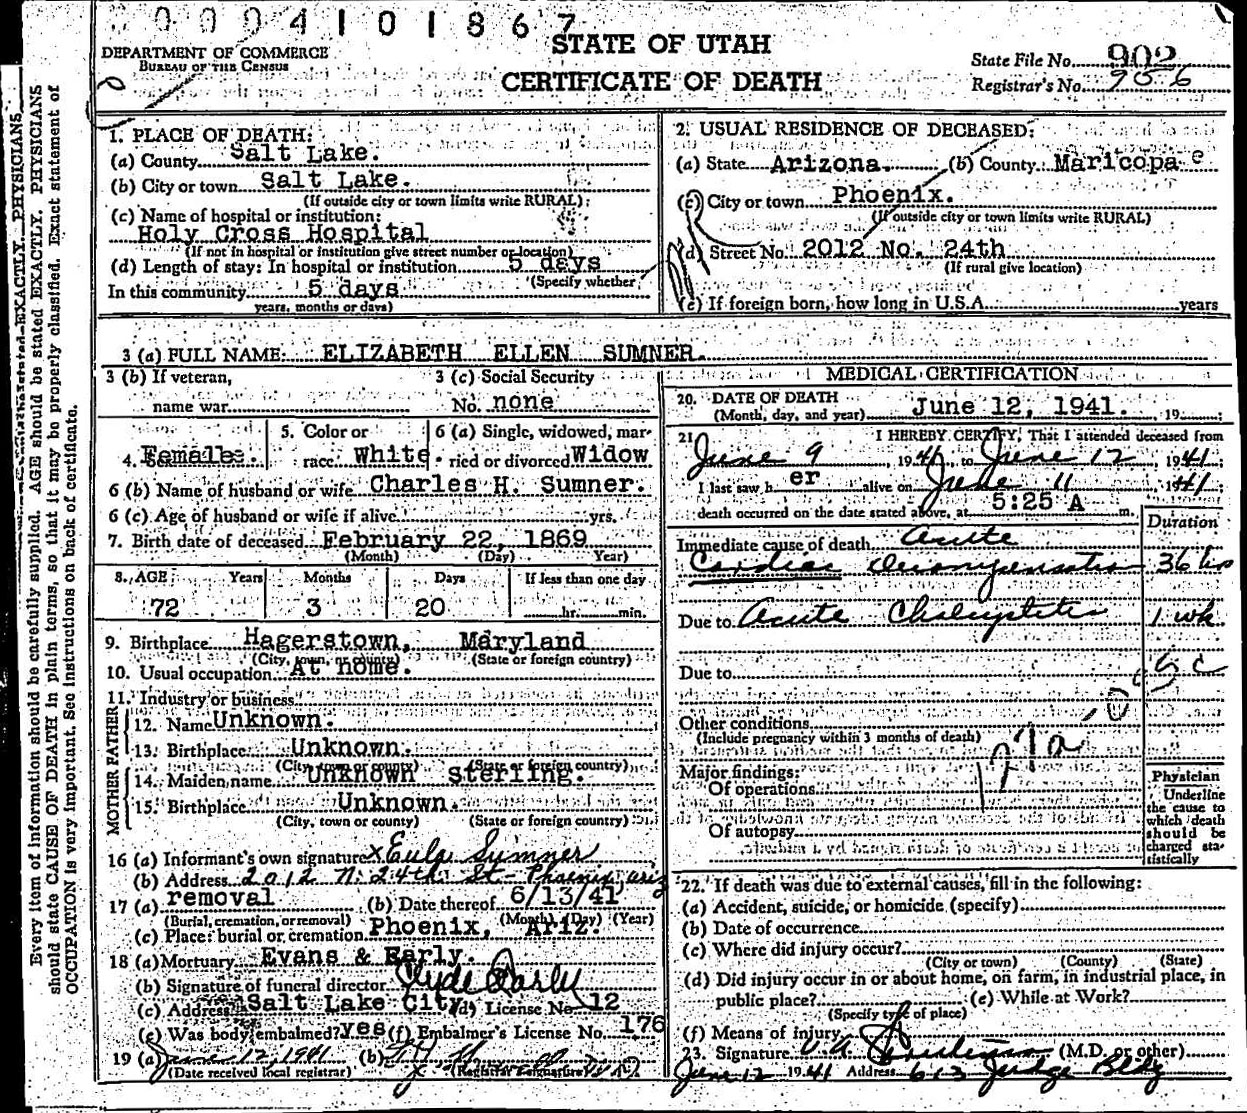 0004101867
DEPARTMENT OF COMMERCE
BUREAU OF THE CENSUS
STATE OF UTAH
CERTIFICATE OF DEATH
State File No. 902
Registrar's No. 956
1. PLACE OF DEATH:
(a) County Salt Lake.
(b) City or town Salt Lake.
(If outside city or town limits write RURAL)
(c) Name of hospital or institution:
Holy Cross Hospital
(If not in hospital or institution give street number or location)
(d) Length of stay: In hospital or institution 5 days
(Specify whether
In this community 5 days
years, months or days)
2. USUAL RESIDENCE OF DECEASED:
(a) State Arizona. (b) County Maricopa e
(c) City or town Phoenix.
(If outside city or town limits write RURAL)
(d) Street No. 2012 No. 24th
(If rural give location)
(e) If foreign born, how long in U.S.A. years
3 (a) FULL NAME: ELIZABETH ELLEN SUMNER.
3 (b) If veteran,
name war
3 (c) Social Security
No. none
4. Sex Female. 5. Color or race White. 6 (a) Single, widowed, married or divorced Widow
6 (b) Name of husband or wife Charles H. Sumner.
6 (c) Age of husband or wife if alive yrs.
7. Birth date of deceased February 22, 1869
(Month) (Day) Year)
8. AGE Years Months Days If less than one day
72 3 20 hr. min.
9. Birthplace Hagerstown, Maryland
(City, town, or county) (State or foreign country)
10. Usual occupation At home.
11. Industry or business
FATHER
12. Name Unknown.
13. Birthplace Unknown.
(City, town or county) (State or foreign country)
MOTHER
14. Maiden name Unknown Sterling.
15. Birthplace Unknown.
(City, town or county) (State or foreign country)
16 (a) Informant's own signature x Eula Sumner
(b) Address 2012 N. 24th St - Phoenix, Ariz
17 (a) removal (b) Date thereof 6/13/41
(Burial, cremation, or removal) (Month) (Day) (Year)
(c) Place: burial or cremation Phoenix, Ariz.
18 (a) Mortuary Evans & Early.
(b) Signature of funeral director Clyde Early
(c) Address Salt Lake City, (d) License No 12
(e) Was body embalmed? yes (f) Embalmer's License No. 176
19 (a) June 12, 1941 (b)
(Date received local registrar) (Registrar's signature)
MEDICAL CERTIFICATION
20. DATE OF DEATH
(Month, day, and year) June 12, 1941. 19 ;
21 I HEREBY CERTIFY, That I attended deceased from
June 9, 1941, to June 12 1941
I last saw her alive on June 11 1941
death occurred on the date stated above, at 5:25 A m.
Duration
Immediate cause of death Acute
Cardiac Decompensation 36 hrs
Due to Acute 1 wk
Due to
Other conditions
(Include pregnancy within 3 months of death)
127a
Major findings:
Of operations
Of autopsy
Physician
Underline
the cause to
which death
should be
charged sta-
tistically
22. If death was due to external causes, fill in the following:
(a) Accident, suicide, or homicide (specify)
(b) Date of occurrence
(c) Where did injury occur?
(City or town) (County) (State)
(d) Did injury occur in or about home, on farm, in industrial place, in
public place? (e) While at Work?
(Specify type of place)
(f) Means of injury
23. Signature (M.D. or other)
June 12 1941 Address 613 Judge Bldg
Every item of information should be carefully supplied. AGE should be stated EXACTLY. PHYSICIANS
should state CAUSE OF DEATH in plain terms, so that it may be properly classified. Exact statement of
OCCUPATION is very important. See instructions on back of certificate.